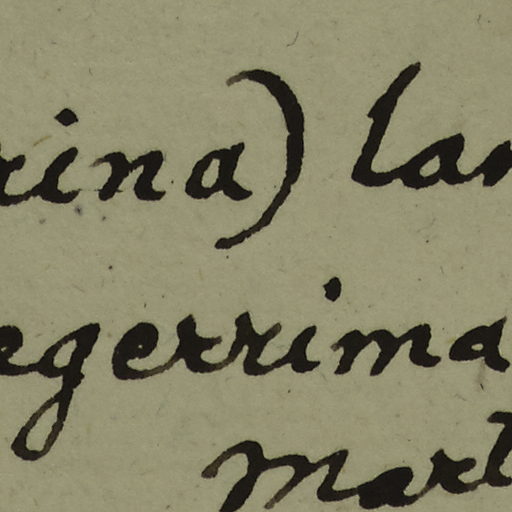 rina) lan
egerrima
Mart